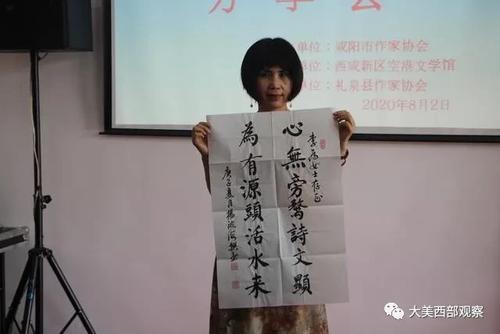 分享会
单位：咸阳市作家协会
单位：西咸新区空港文学馆
单位：礼泉县作家协会
2020年8月2日
女士存正
心無旁鶩詩文顯
為有源頭活水来
庚子夏月楊
大美西部观察